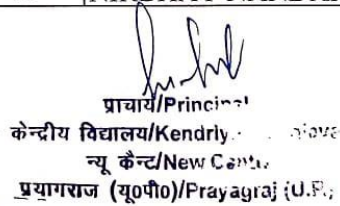 प्राचार्य/Principal
केन्द्रीय विद्यालय/Kendriy
न्यू कैन्ट/New Cantt.
प्रयागराज (यू०पी०)/Prayagraj (U.P.)